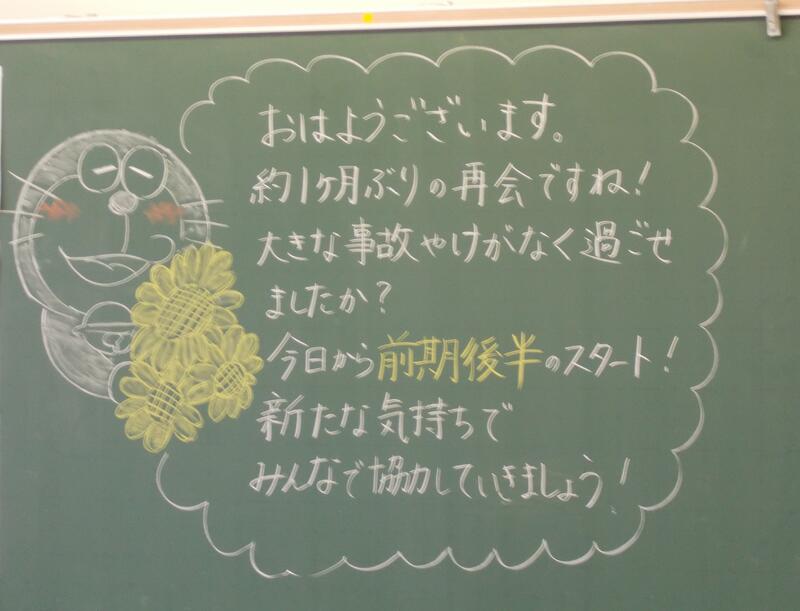 おはようございます。
約1ヶ月ぶりの再会ですね!
大きな事故やけがなく過ごせ
ましたか?
今日から前期後半のスタート!
新たな気持ちで
みんなで協力していきましょう!